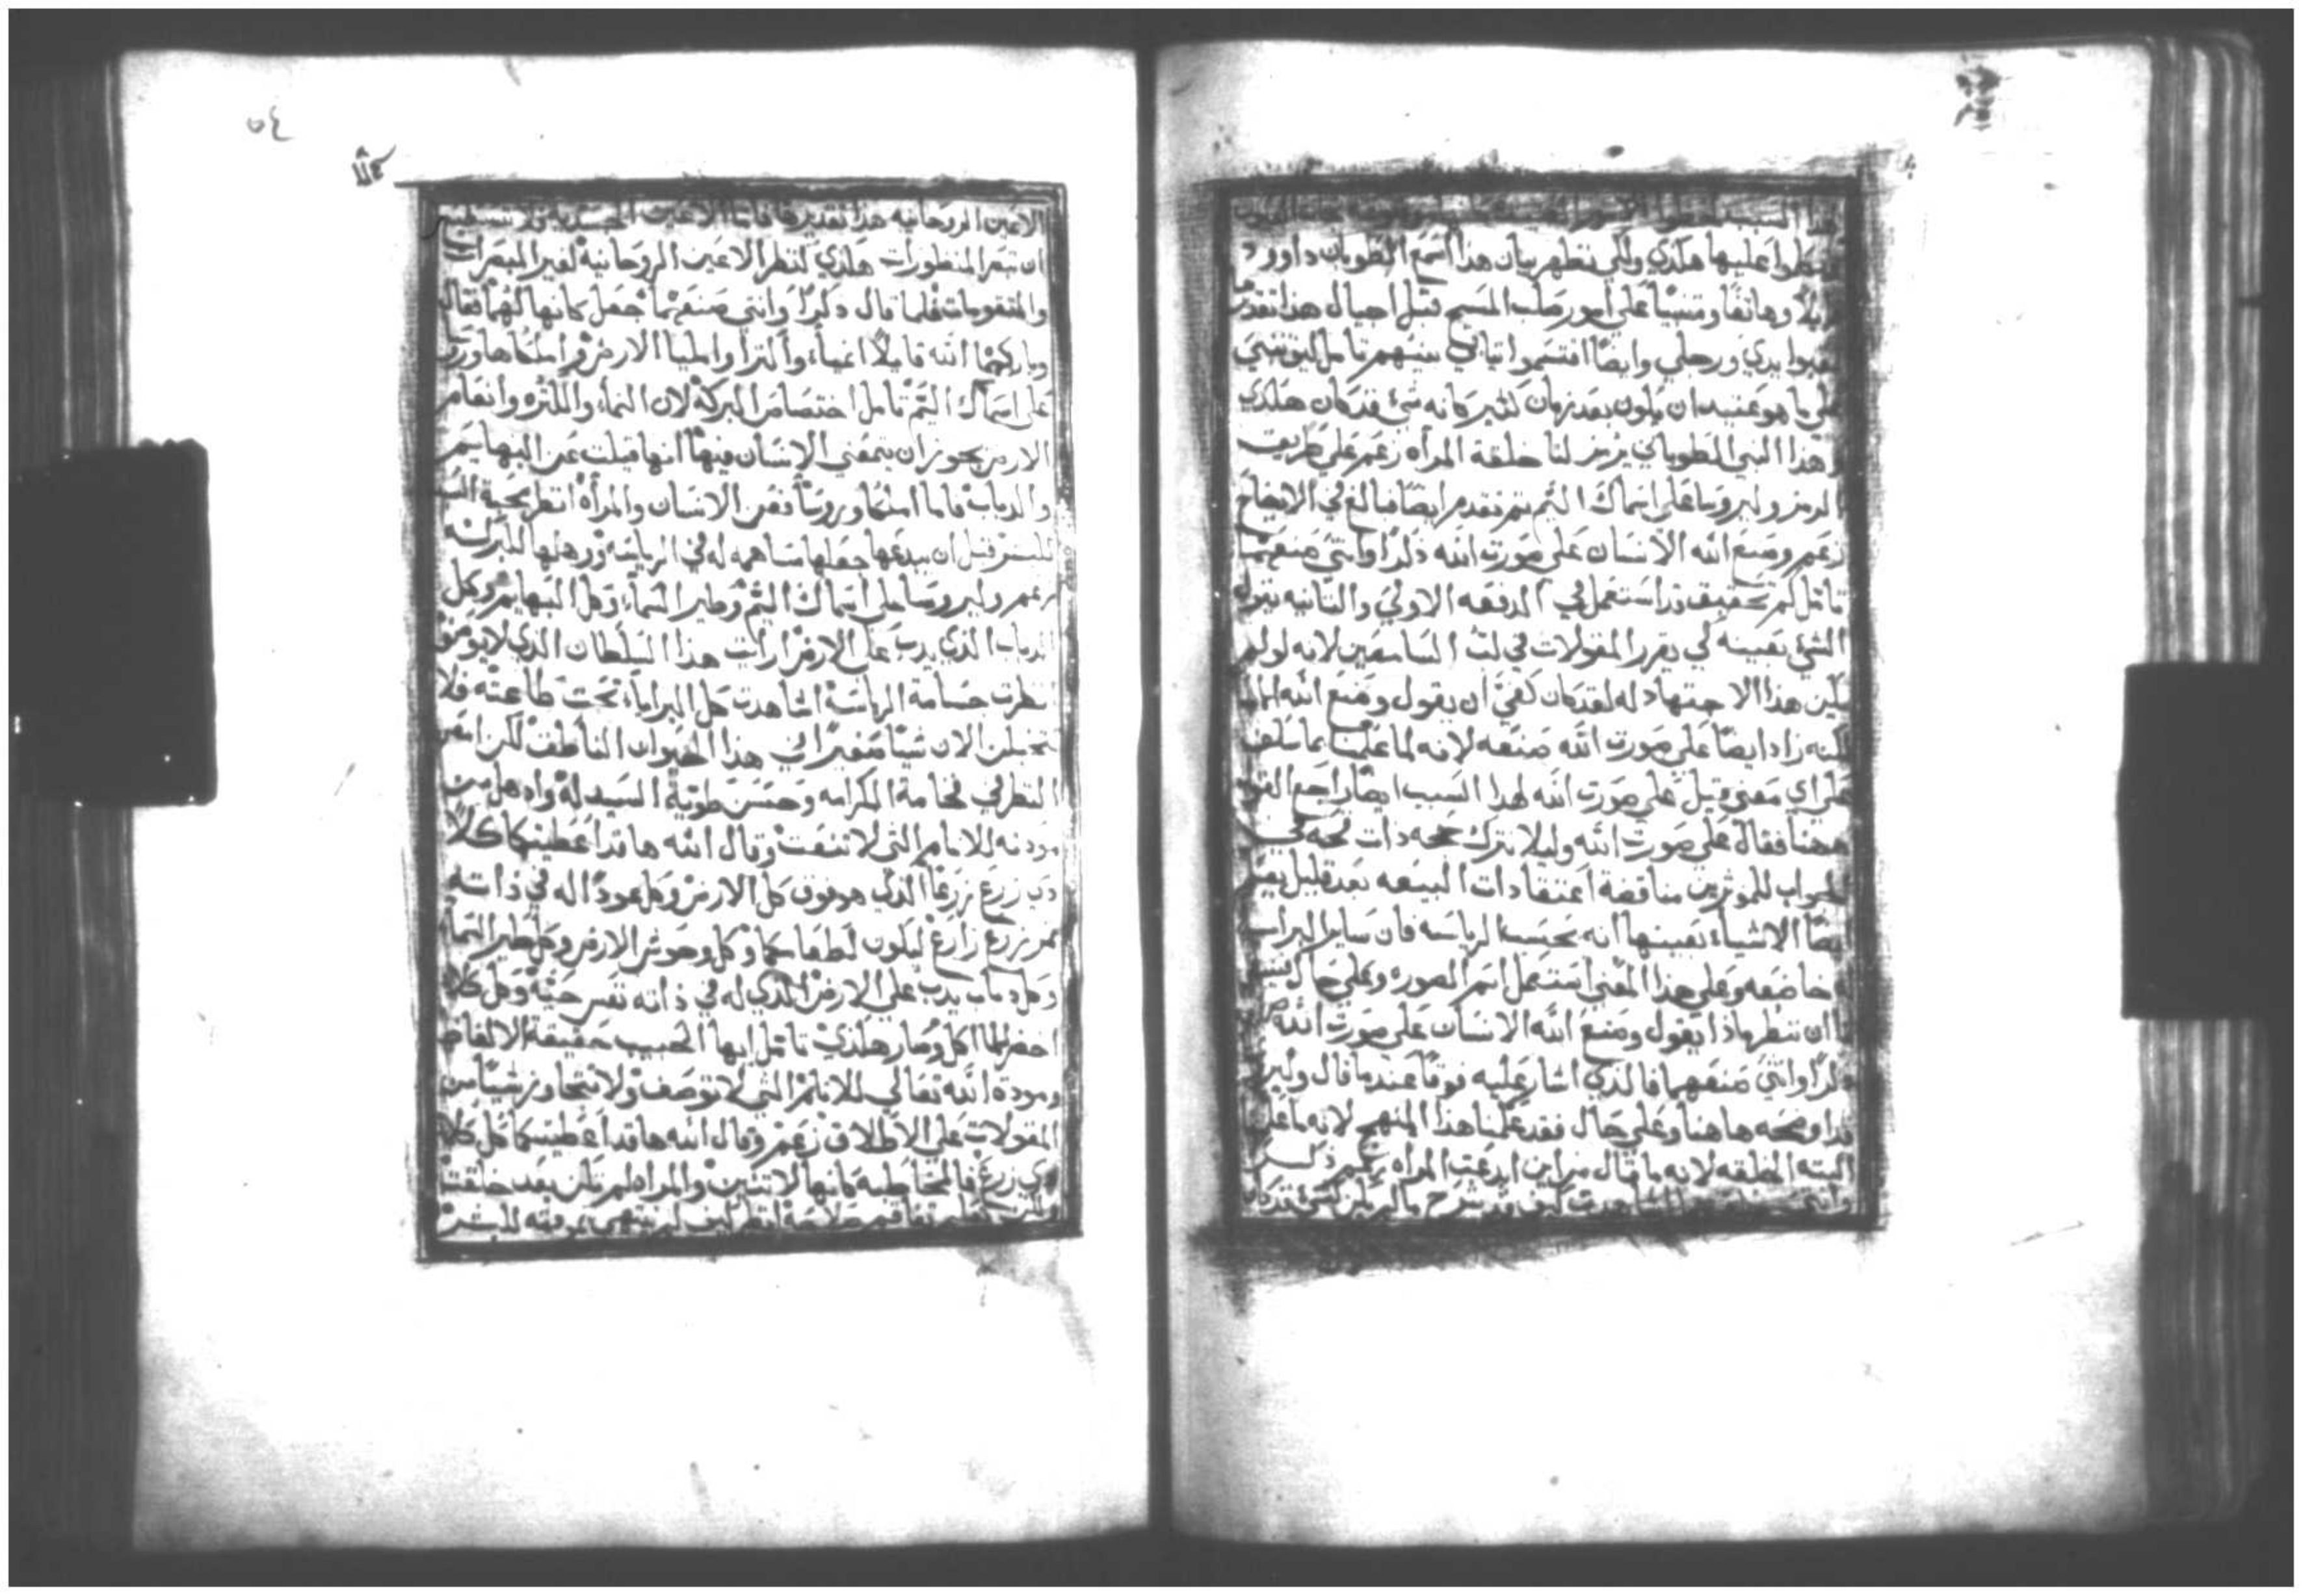 هذا السبب
عليها هكذي ولكي تظهر بيان هذا اسمع الطوبان داوود
وهاتفًا ومتنبيًا علي امور صلب المسيح قبل اجيال هذا تقدرها
يدي ورجلي وايضًا اقتسموا تيابي بينهم تامل ليف تنبي
علي ما هو عتيد ان يكون بعد زمان كثير كانه شي قد كان هكذي
وهذا النبي الطوباني يرمز لنا خلقة المراه زعم علي طريق
الرمز وليروسا علي اسماك اليم ثم تقدم ايضًا فبالغ في الايضاح
زعم وصنع الله الانسان علي صورت الله ذكرًا وانثي صنعهما
تامل كم تحقيق قد استعمل في الدفعه الاولي والتانيه بقوله
الشي بعينه كي يقرر المقولات في لب السامعين لانه لو لم
يكن هذا الاجتهاد له لقد كان كفي ان يقول وصنع الله
لكنه زاد ايضًا علي صورت الله صنعه لانه لما علمنا بما سلف
علي اي معني قيل علي صورت الله لهذا السبب ايضًا راجع القول
ههنا فقال علي صورت الله وليلا يترك حجه ذات قحه في
الجواب للموثرين مناقضة اعتقادات البيعه بعد قليل
ايضًا الاشيا بعينها انه بحسب الرياسه فان ساير البرايا
خاضعه وعلي هذا المعني استعمل اسم الصوره وعلي حال
ان ننظر ماذا يقول وصنع الله الانسان علي صورت الله
ذكرًا وانثي صنعهما فالذي اشار عليه فوقًا عندما قال وليروسا
قد اوضحه هاهنا وعلي حال فقد علمنا هذا المنهج لانه ما علم
البته الخلقه لانه ما قال من اين ابدعت المراه زعم ذكر
وانثي اشاهدت كيف قد شرح ما لم يكن كشي قد كان
٥٤
الاعين الروحانيه هذا تقديرها فاما الاعين الجسديه فلا تستطيع
ان تبصر المنظورات هكذي كنظر الاعين الروحانية لغير المبصرات
والمتقومات فلما قال ذكرًا وانثي صنعهما جعل كانها لهما فقال
وباركهما الله قايلًا انميا واكثرا واملیا الارض واملكاها وروسا
علي اسماك اليم تامل اختصاص البركة لان النما والكثره وانعام
الارض يجوز ان يتمعني الانسان فيها انها قيلت عن البهايم
والدباب فاما املكا وروسا فعن الانسان والمراة انظر محبة الله
للبشر قبل ان يبدعها جعلها مساهمه له في الرياسه وزهلها للبركه
زعم وليروسا علي اسماك اليم وطير السما وكل البهايم وكل
الدباب الذي يدب علي الارض ارايت هذا السلطان الذي لا يوصف
انظرت جسامة الرياسة اشاهدت كل البرايا تحت طاعته فلا
تخيلن الان شيًا صغيرًا في هذا الحيوان الناطق لكن امعن
النظر في فخامة الكرامه وحسن طوية السيد له واذهل من
مودته للانام التي لا تنعت وقال الله ها قد اعطيتكما كلا
ذي زرع زرعًا الذي هو فوق كل الارض وكل عود اله في ذاته
ثمر زرع زارع ليكون لطعامكما وكل وحوش الارض وكل طير السما
وكل دباب يدب علي الارض الذي له في ذاته نفس حية وكل كلا
اخضر للماكل وصار هكذي تامل ايها الحبيب حقيقة الالفاظ
ومودة الله تعالي للانام التي لا توصف ولا تتجاوز شيًا من
المقولات علي الاطلاق زعم وقال الله ها قد اعطيتكما كل كلا
ذي زرع فالمخاطبه كانها لاثنين والمراه لم تكن بعد خلقت
انظر كيف لم ينتهي برفته للبشر